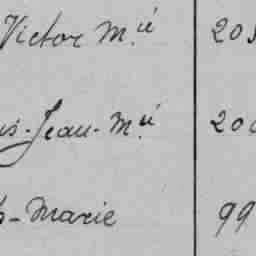 Victor M.ie 20
Jean-Mie 20
Marie 99